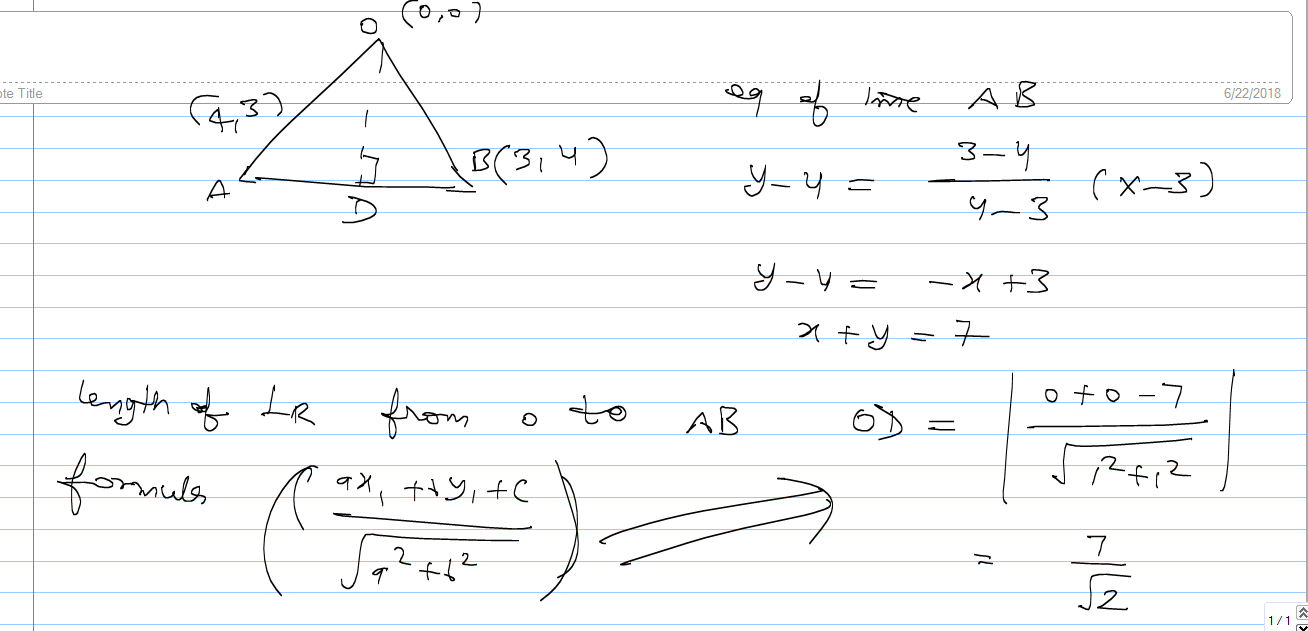 O (0,0)
ote Title
6/22/2018
(4,3)
A
B(3,4)
D
eq of line AB
y-4 = 3-4/4-3 (x-3)
y-4 = -x+3
x+y = 7
length of LR from o to AB OD = |0+0-7/√1²+1²|
formula (ax₁+by₁+c/√a²+b²)
= 7/√2
1/1